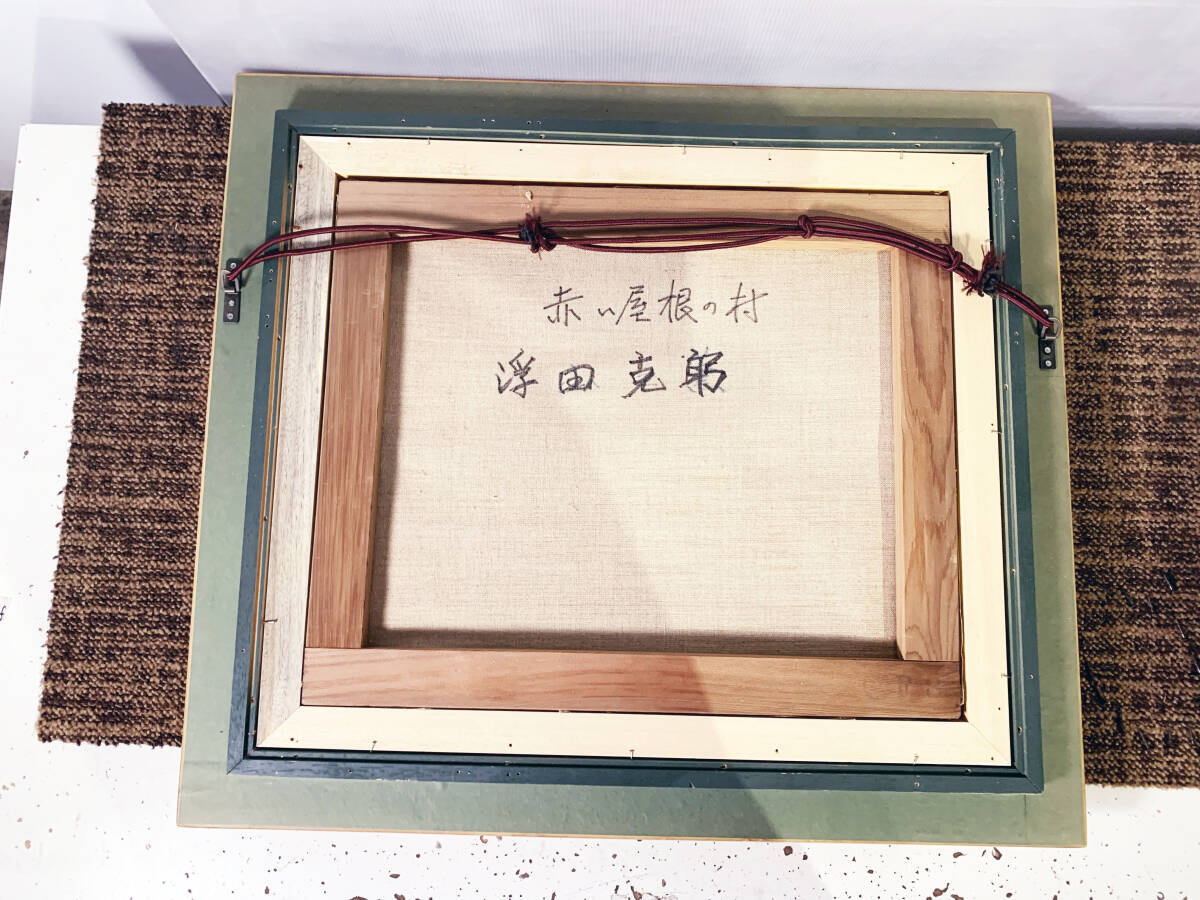 赤い屋根の村
浮田克躬